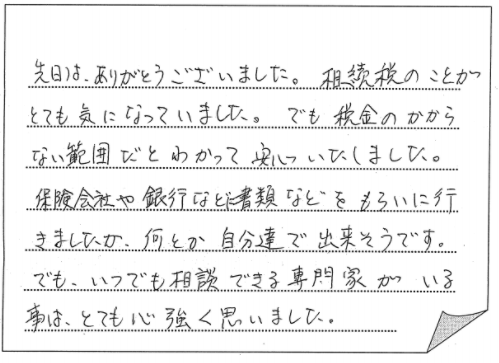 先日は、ありがとうございました。 相続税のことが
とても気になっていました。 でも税金のかから
ない範囲だとわかって安心いたしました。
保険会社や銀行などに書類などをもらいに行
きましたが、何とか自分達で出来そうです。
でも、いつでも相談できる専門家がいる
事は、とても心強く思いました。